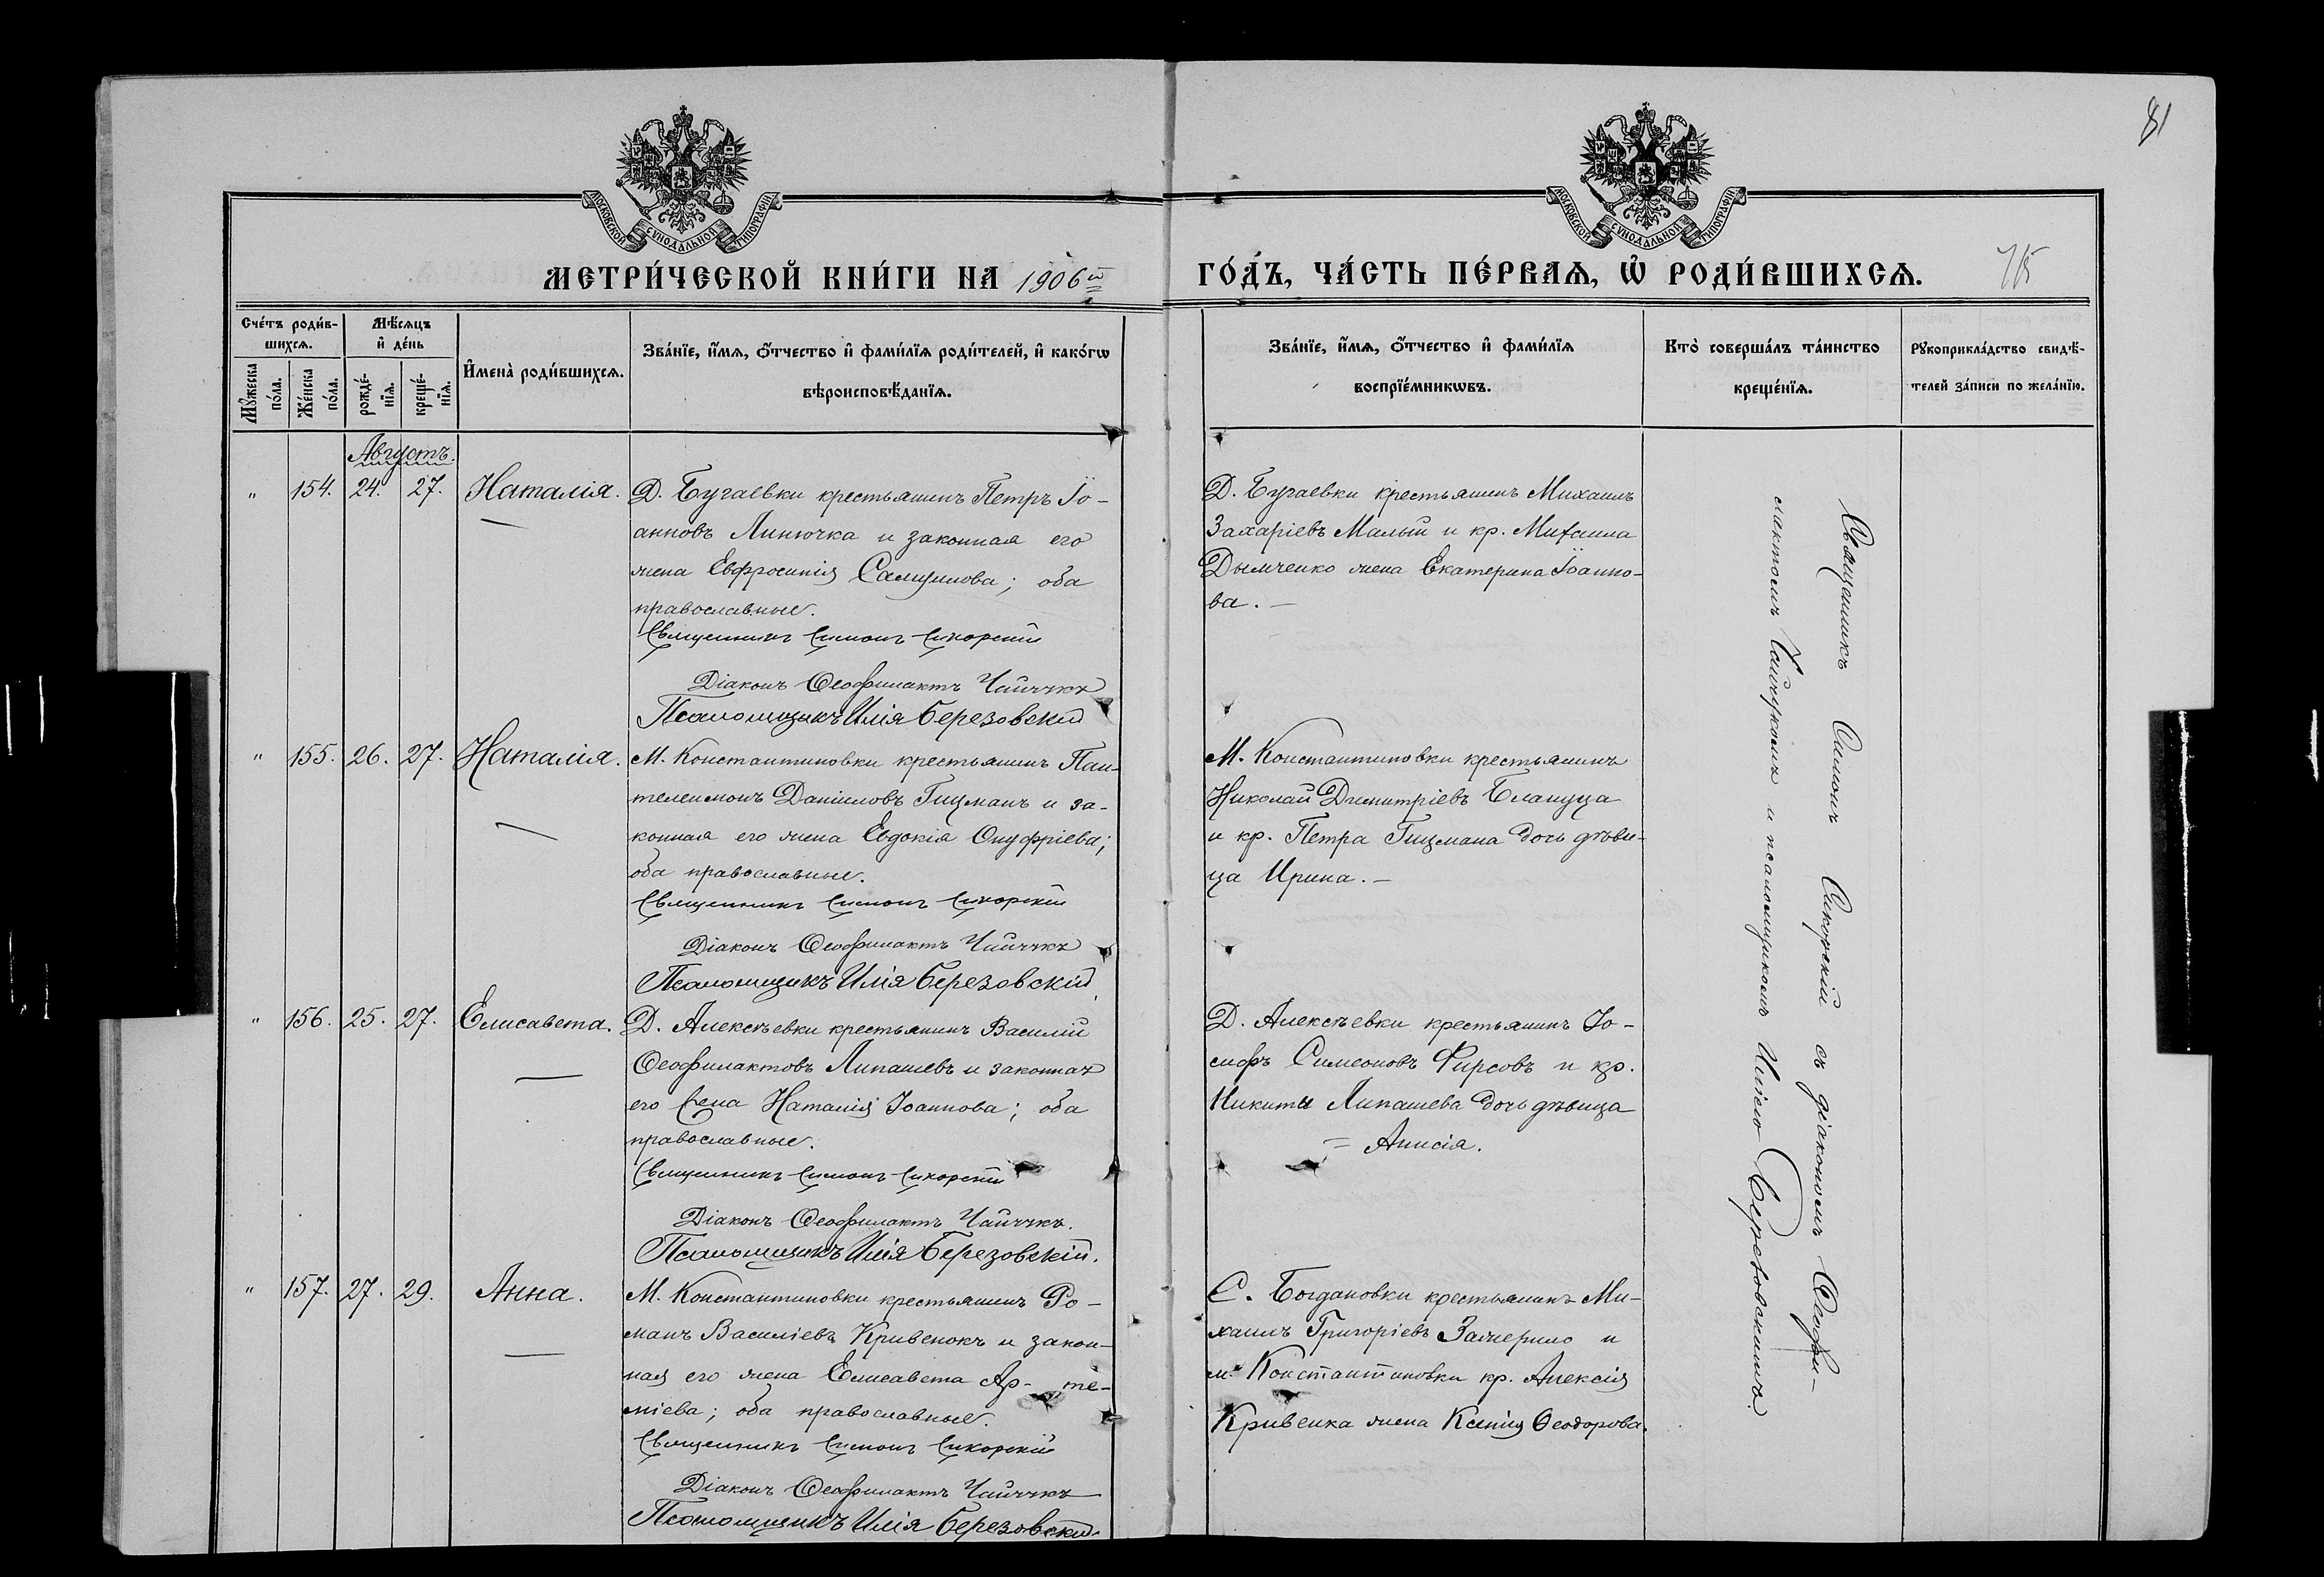 81
МОСКОВСКОЙ СУНОДАЛЬНОЙ ТИПОГРАФІИ
МОСКОВСКОЙ СУНОДАЛЬНОЙ ТИПОГРАФІИ
МЕТРИ́ЧЕСКОЙ КНИ́ГИ НА 1906й ГО́ДЪ, ЧА́СТЬ ПЕ́РВАѦ, Ѽ РОДИ́ВШИХСѦ.
Сче́тъ роди́в-
шихсѧ.
Мꙋ́жеска по́ла.
Же́нска по́ла.
Мѣ́сѧцъ
и҆ де́нь
рожде́-
нїѧ.
креще́-
нїѧ.
И҆мена̀ роди́вшихсѧ.
Зва́нїе, и҆́мѧ, ѻ҆́тчество и҆ фами́лїѧ роди́телей, и҆ како́гѡ
вѣроисповѣ́данїѧ.
Зва́нїе, и҆́мѧ, ѻ҆́тчество и҆ фами́лїѧ
воспрїе́мникѡвъ.
Кто̀ соверша́лъ та́инство
креще́нїѧ.
Рꙋкоприкла́дство свидѣ́-
телей за́писи по жела́нїю.
Августъ.
" 154. 24. 27. Наталія.
Д. Бугаевки крестьянинъ Петръ Іо-
анновъ Линючка и законная его
жена Евфросинія Самуилова; оба
православные.
Священникъ Симонъ Сикорскій
Діаконъ Ѳеофилактъ Чайчукъ
Псаломщикъ Илія Березовскій
Д. Бугаевки крестьянинъ Михаилъ
Захаріевъ Малый и кр. Михаила
Дымченко жена Екатерина Іоанно-
ва. —
" 155. 26. 27. Наталія.
М. Константиновки крестьянинъ Пан-
телеимонъ Даніиловъ Гицманъ и за-
конная его жена Евдокія Онуфріева;
оба православные.
Священникъ Симонъ Сикорскій
Діаконъ Ѳеофилактъ Чайчукъ
Псаломщикъ Илія Березовскій
М. Константиновки крестьянинъ
Николай Димитріевъ Блануца
и кр. Петра Гицмана дочь дѣви-
ца Ирина. —
" 156. 25. 27. Елисавета.
Д. Алексѣевки крестьянинъ Василій
Ѳеофилактовъ Липашевъ и законная
его жена Наталія Іоаннова; оба
православные.
Священникъ Симонъ Сикорскій
Діаконъ Ѳеофилактъ Чайчукъ.
Псаломщикъ Илія Березовскій.
Д. Алексѣевки крестьянинъ Іо-
сифъ Симеоновъ Фирсовъ и кр.
Никиты Липашева дочь дѣвица
= Анисія.
" 157. 27. 29. Анна.
М. Константиновки крестьянинъ Ро-
манъ Василіевъ Кривенокъ и закон-
ная его жена Елисавета Ар- те-
міева; оба православные.
Священникъ Симонъ Сикорскій
Діаконъ Ѳеофилактъ Чайчукъ
Псаломщикъ Илія Березовскій.
С. Богдановки крестьянинъ Ми-
хаилъ Григоріевъ Зажерило и
м. Константиновки кр. Алексія
Кривенка жена Ксенія Ѳеодорова.
Священникъ Симонъ Сикорскій съ діакономъ Ѳеофи-
лактомъ Чайчукомъ и псаломщикомъ Иліею Березовскимъ.